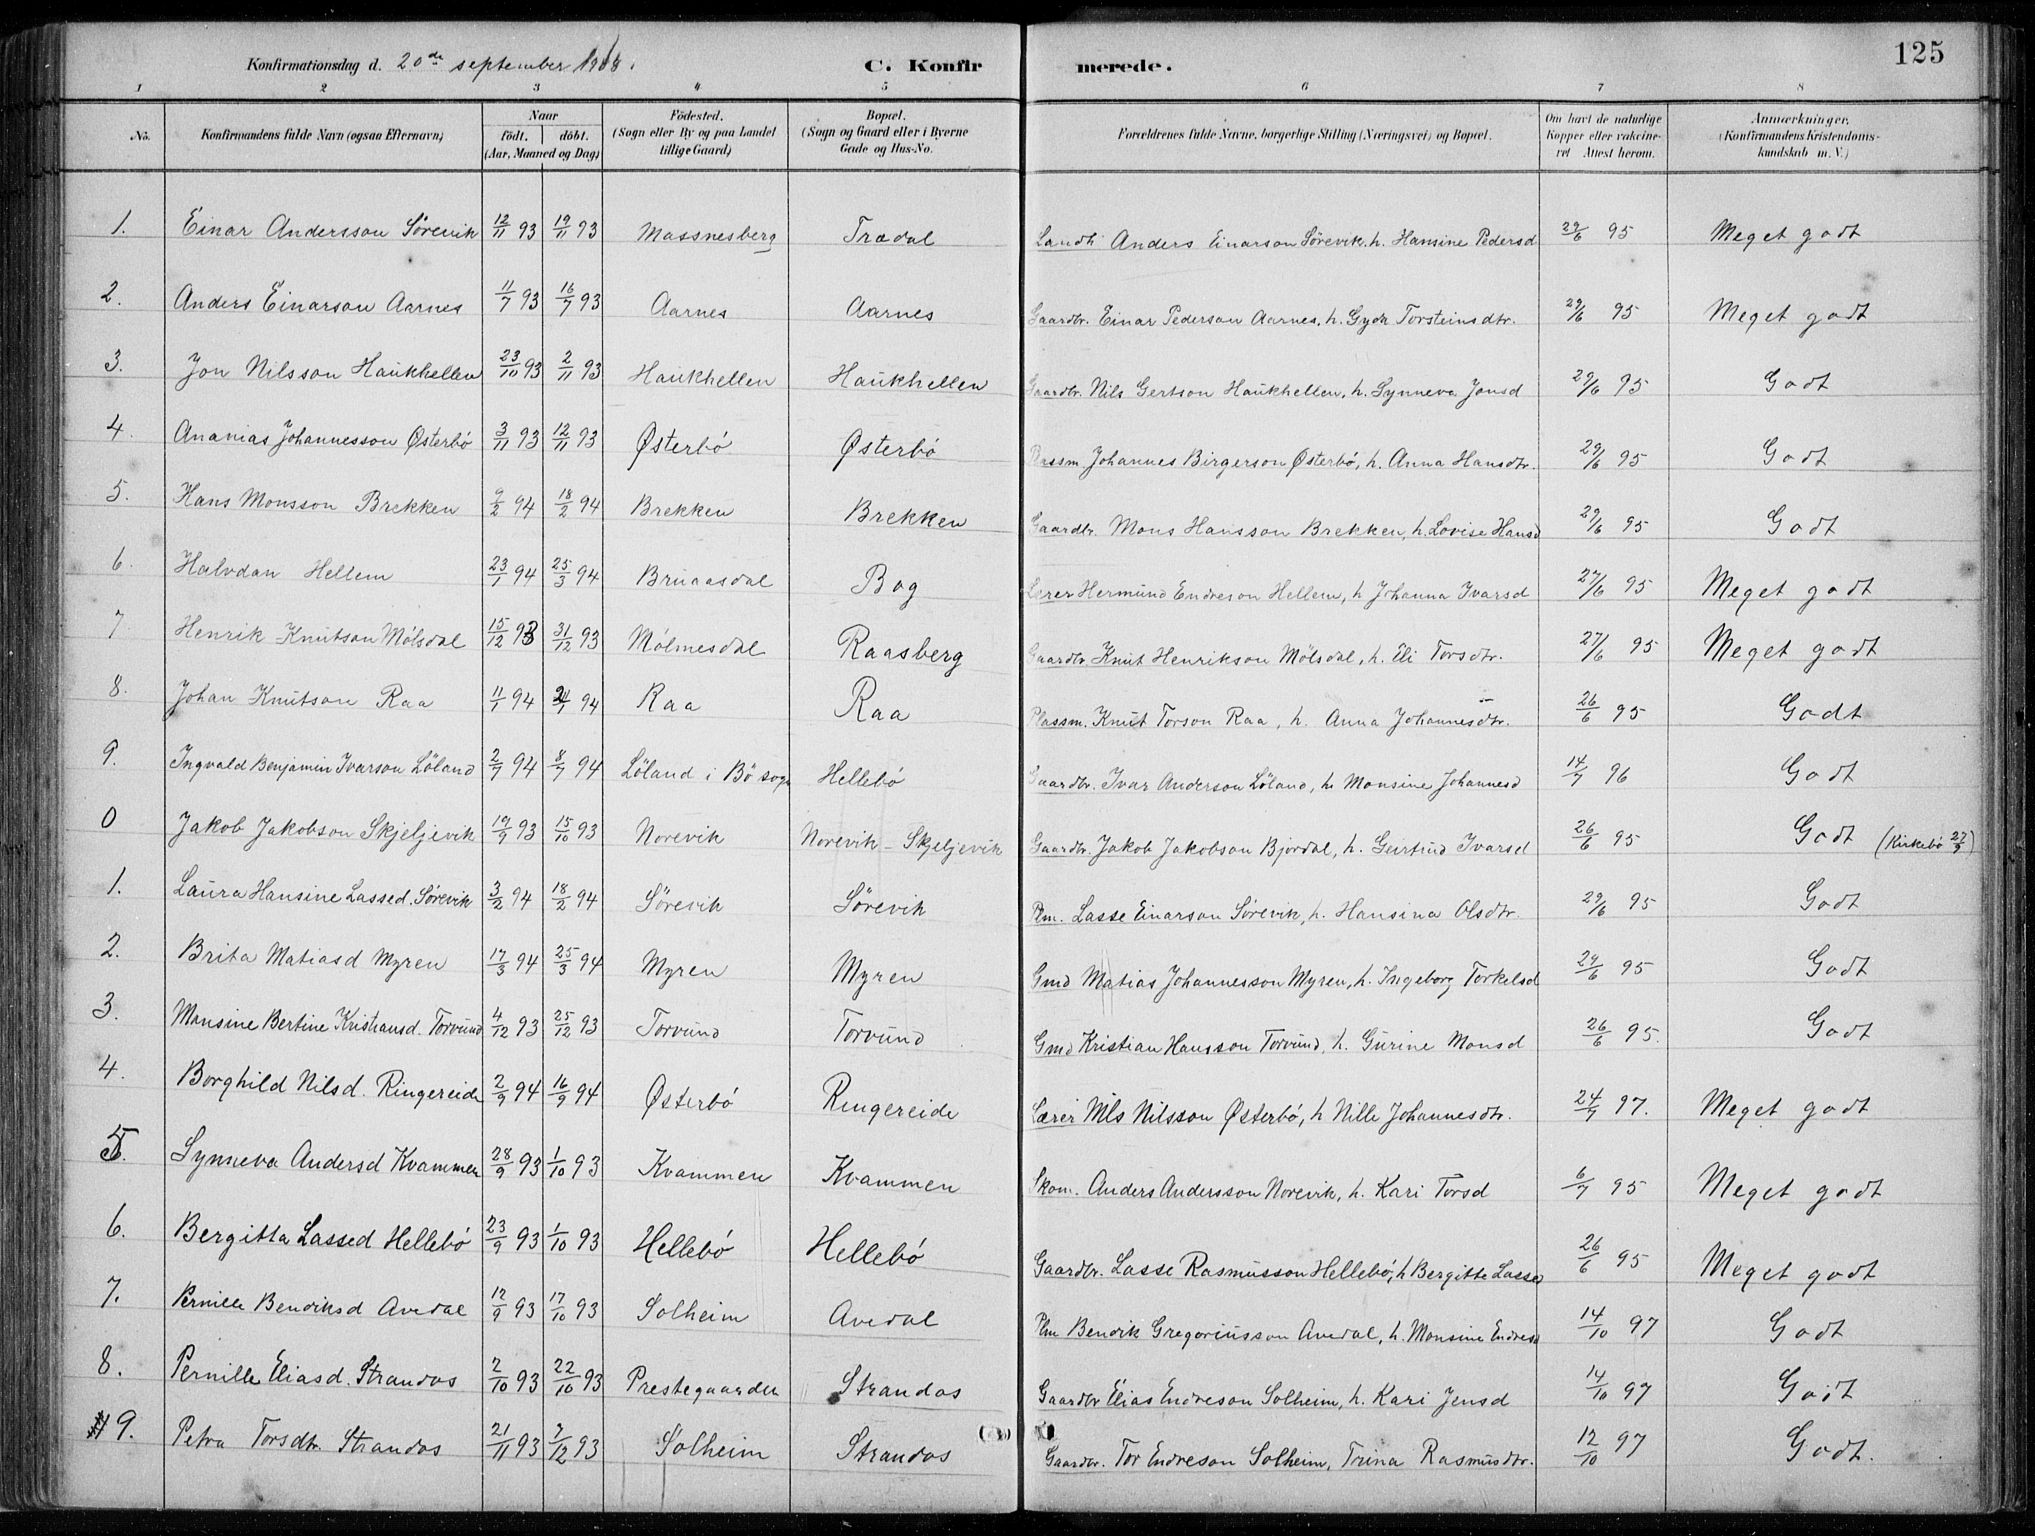 Konfirmationsdag d. 20de september 1908. C. Konfirmerede. 125
1 2 3 4 5 6 7 8
No. Konfirmandens fulde Navn (ogsaa Efternavn) Naar födt. döbt. (Aar, Maaned og Dag) Födested. (Sogn eller By og paa Landet tillige Gaard) Bopæl. (Sogn og Gaard eller i Byerne Gade og Hus-No. Forældrenes fulde Navne, borgerlige Stilling (Næringsvei) og Bopæl. Om havt de naturlige Kopper eller vakcineret Attest herom. Anmærkninger. (Konfirmandens Kristendomskundskab m. V.)
1. Einar Andersson Sörevik 12/11 93 19/11 93 Massnesberg Trædal Landh Anders Einarson Sörevik, h. Hansine Pedersd 29/6 95 Meget godt
2. Anders Einarson Aarnes 11/7 93 16/7 93 Aarnes Aarnes Gaardbr. Einar Pederson Aarnes, h. Gyda Torsteinsdtr. 29/6 95 Meget godt
3. Jon Nilsson Haukhellen 23/10 93 2/11 93 Haukhellen Haukhellen Gaardbr. Nils Gertson Haukhellen, h. Synneva Jonsd 29/6 95 Godt
4. Ananias Johannesson Østerbö 3/11 93 12/11 93 Østerbö Østerbö Plassm Johannes Birgerson Østerbö, h. Anna Hansdtr. 29/6 95 Godt
5. Hans Monsson Brekken 9/2 94 18/2 94 Brekken Brekken Gaardbr. Mons Hansson Brekken, h. Lovise Hansd 29/6 95 Godt
6. Halvdan Hellem 23/1 94 25/3 94 Bruaasdal Bog Lærer Hermund Endreson Hellem, h Johanna Ivarsd 27/6 95 Meget godt
7 Henrik Knutson Mölsdal 15/12 93 31/12 93 Mölmesdal Raasberg Gaardbr. Knut Henrikson Mölsdal, h. Eli Torsdtr. 27/6 95 Meget godt
8. Johan Knutson Raa 11/1 94 21/1 94 Raa Raa Plassm. Knut Torson Raa, h. Anna Johannesdtr. 26/6 95 Godt
9. Ingvald Benjamin Ivarson Löland 2/7 94 8/7 94 Löland i Bö sogn Hellebö Gaardbr. Ivar Anderson Löland, h Monsine Johannesd 14/7 96 Godt
0 Jakob Jakobson Skjeljevik 19/9 93 15/10 93 Norevik Norevik - Skjeljevik Gaardbr. Jakob Jakobson Bjordal, h. Geirtrud Ivarsd 26/6 95 Godt (Kirkebö 27/9)
1. Laura Hansine Lassed. Sörevik 3/2 94 18/2 94 Sörevik Sörevik Plm. Lasse Einarson Sörevik, h. Hansina Olsdtr. 29/6 95 Godt
2. Brita Matiasd Myren 17/3 94 25/3 94 Myren Myren Gmd Matias Johannesson Myren, h. Ingeborg Torkelsd 29/6 95 Godt
3. Monsine Bertine Kristiansd. Torvund 4/12 93 25/12 93 Torvund Torvund Gmd Kristian Hansson Torvund, h. Gurine Monsd 26/6 95. Godt
4. Borghild Nilsd. Ringereide 2/9 94 16/9 94 Østerbö Ringereide Lærer Nils Nilsson Østerbö, h Nille Johannesdtr. 24/7 97. Meget godt
5. Synneva Andersd Kvammen 28/9 93 1/10 93 Kvammen Kvammen Skom. Anders Andersson Norevik, h. Kari Torsd 6/7 95 Meget godt
6. Bergitta Lassed Hellebö 23/9 93 1/10 93 Hellebö Hellebö Gaardbr. Lasse Rasmusson Hellebö, h Bergitte Lassed 26/6 95 Meget godt
7. Pernille Bendiksd Avedal 12/9 93 17/10 93 Solheim Avedal Plm Bendik Gregoriusson Avedal, h. Monsine Endresd 14/10 97 Godt
8. Pernille Eliasd. Strandos 2/10 93 22/10 93 Prestegaarden Strandos Gaardbr Elias Endreson Solheim, h. Kari Jensd 14/10 97 Godt
9. Petra Torsdtr. Strandos 21/11 93 3/12 93 Solheim Strandos Gaardbr. Tor Endreson Solheim, Trina Rasmusdtr. 12/10 97 Godt.